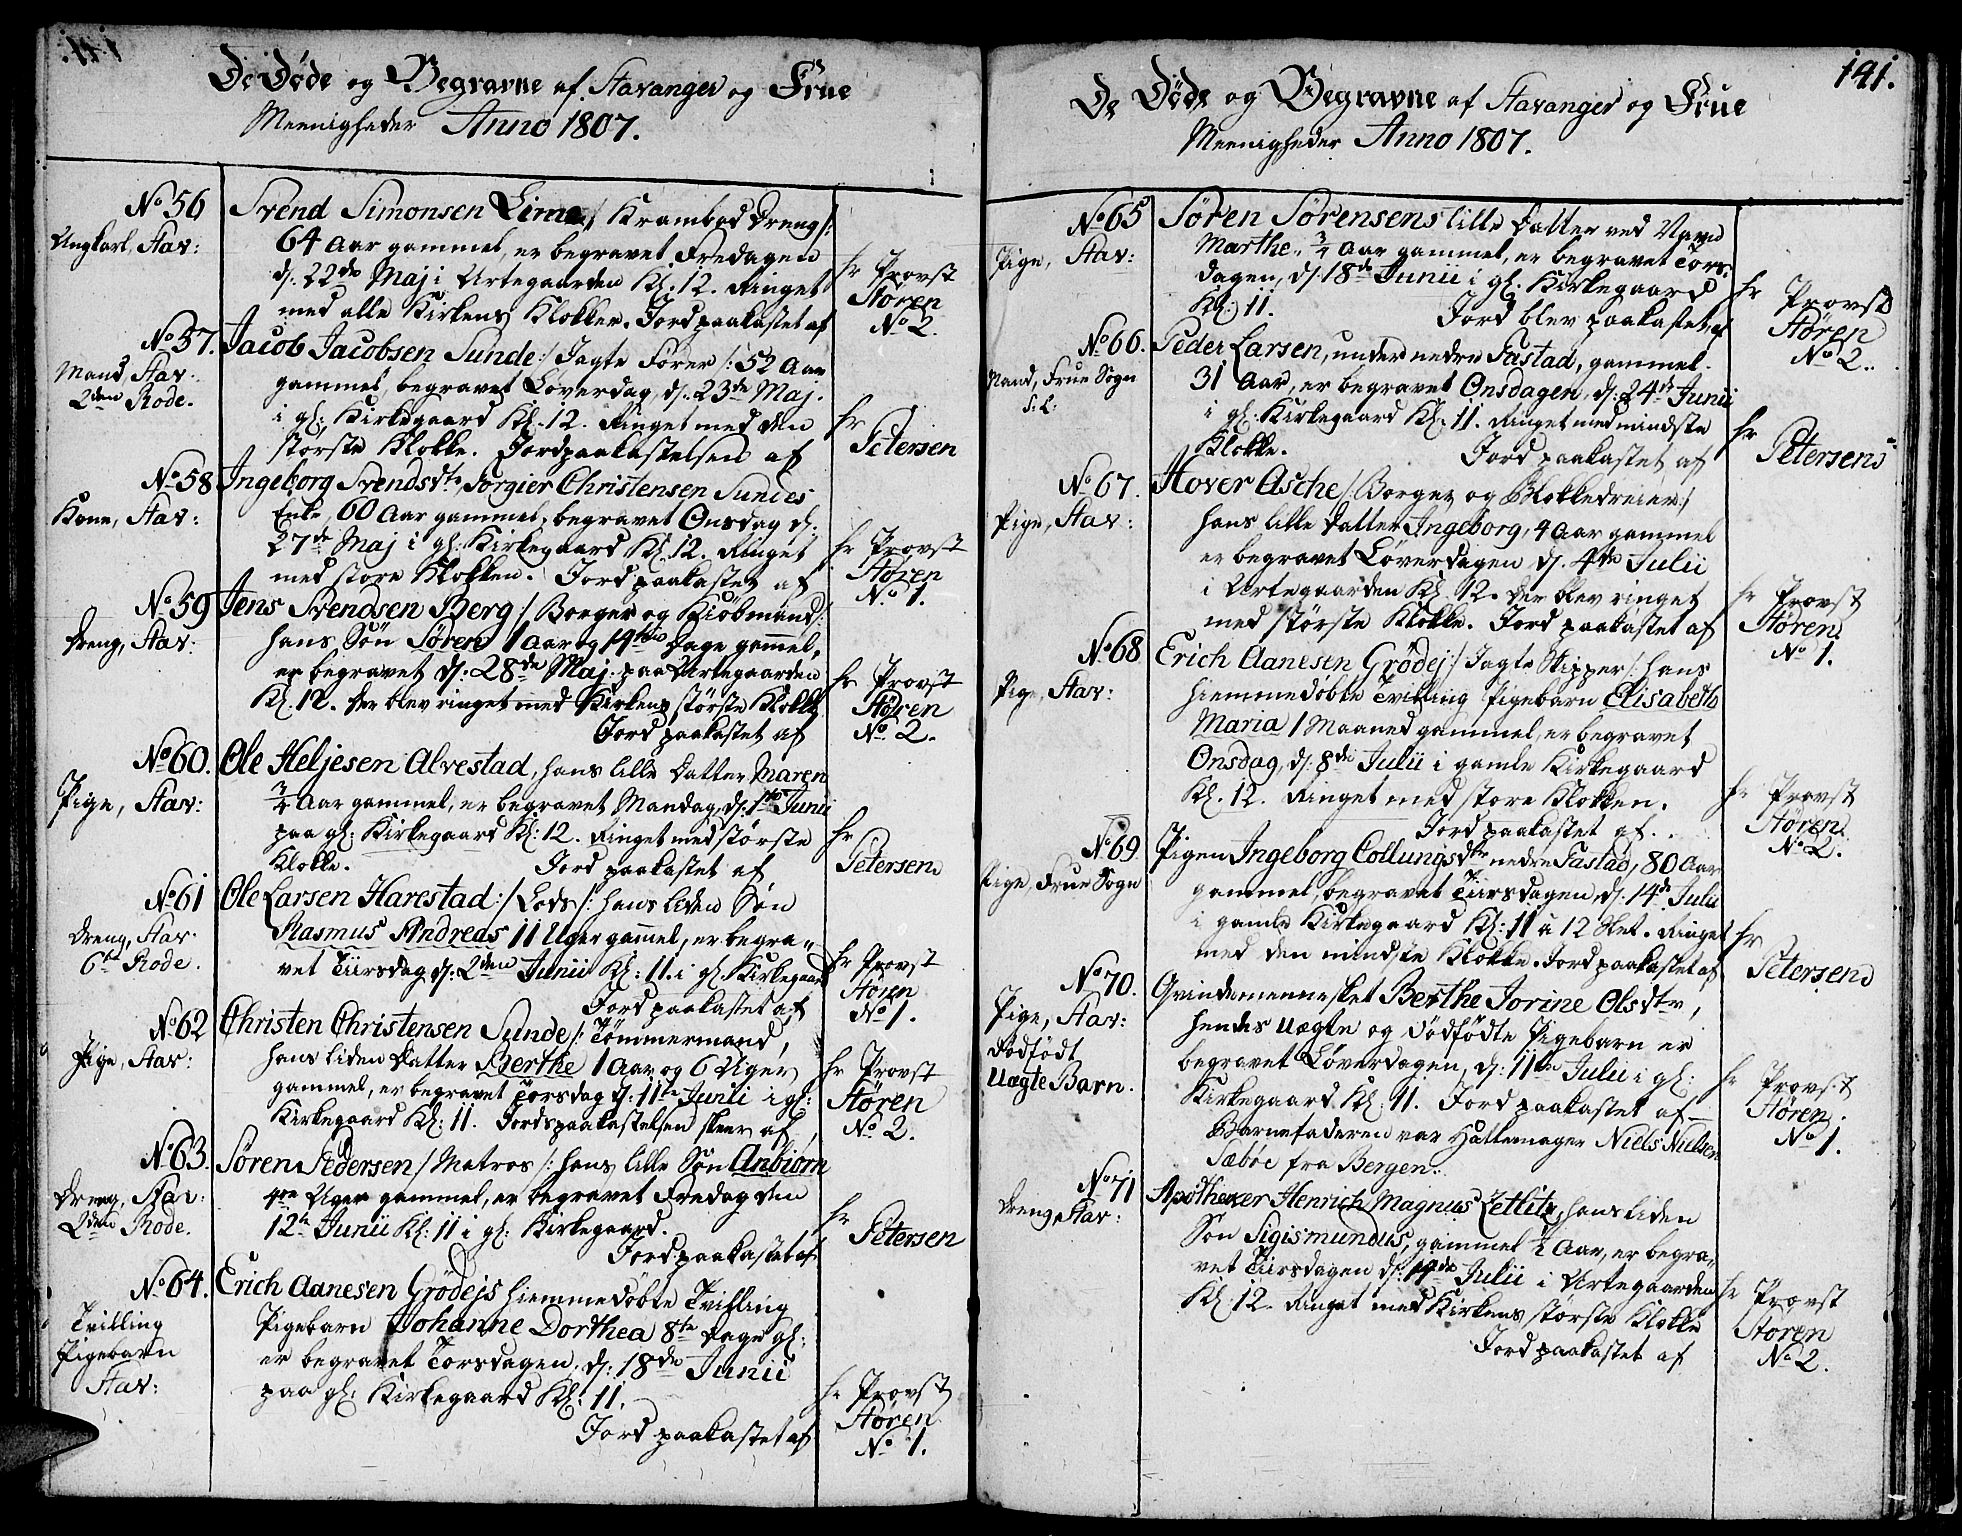 De Døde og Begravne af Stavanger og Frue
Meenigheder Anno 1807.
No 56
Ungkarl, Stav:
Svend Simonsen Lima /: Krambod Dreng :/
64 Aar gammel, er begravet Fredagen
d: 22de Maj i Urtegaarden Kl. 12. Ringet
med alle Kirkens Klokker. Jord paakastet af
hr Provst
Støren
No 2.
No 57.
Mand, Stav:
2den Rode.
Jacob Jacobsen Sunde /: Jagte Fører :/ 52 Aar
gammel, begravet Løverdag, d: 23de Maj.
i gl: Kirkegaard Kl. 12. Ringet med den
største Klokke. Jordpaakastelsen af
hr
Petersen
No 58
Kone, Stav:
Ingeborg Svendsdtr, Sørgier Christensen Sundes
Enke, 60 Aar gammel, begravet Onsdag d:
27de Maj i gl: Kirkegaard Kl. 12. Ringet
med store Klokken. Jord paakastet af
hr Provst
Støren
No 1.
No 59
Dreng, Stav:
Jens Svendsen Berg /: Borger og Kiøbmand :/
hans Søn Søren 1 Aar og 14 Dage gamel,
er begravet d: 28de Maj paa Urtegaarden
Kl. 12. Der blev ringet med Kirkens største Klokke
Jord paakastet af
hr Provst
Støren
No 2.
No 60.
Pige, Stav:
Ole Heljesen Alvestad, hans lille Datter Maren
3/4 Aar gammel, er begravet Mandag, d: 1ste Junii
paa gl: Kirkegaard Kl: 12. Ringet med største
Klokke. Jord paakastet af
hr
Petersen
No 61
Dreng, Stav.
6te Rode.
Ole Larsen Harestad :/ Lods /: hans liden Søn
Rasmus Andreas 11 Uger gamel, er begra-
vet Tiirsdag d: 2den Junii Kl: 11. i gl. Kirkegaard
Jord paakastet af
hr Provst
Støren
No 1.
No 62
Pige, Stav:
Christen Christensen Sunde /: Tømmermand,
hans liden Datter Berthe 1 Aar og 6 Uger
gammel, er begravet Torsdag d: 11te Junii i gl:
Kirkegaard Kl: 11. Jordspaakastelsen skeer af
hr Provst
Støren
No 2.
No 63.
Dreng, Stav:
2den Rode.
Søren Pedersen / Matros /: hans lille Søn Anbiørn
Uger gammel, er begravet Fredag den
12te Junii Kl: 11 i gl: Kirkegaard.
Jord paakastet af
hr
Petersen
No 64.
Tvilling
Pigebarn
Stav:
Erich Aanesen Grødejs hiemmedøbte Tvilling
Pigebarn Johanne Dorthea 8te Dage gl:
er begravet Torsdagen, d: 18de Junii
paa gl: Kirkegaard Kl: 11.
Jord paakastet af
hr Provst
Støren
No 1.
141.
De Døde og Begravne af Stavanger og Frue
Meenigheder Anno 1807.
No 65
Pige, Stav:
Søren Sørensens lille Datter ved Navn
Marthe, 3/4 Aar gammel, er begravet Tors-
dagen, d: 18de Junii i gl: Kirkegaard
Kl: 11. Jord blev paakastet af
hr Provst
Støren
No 2.
No 66.
Mand, Frue Sogn
S: L:
Peder Larsen, under nedre Tastad, gammel
31 Aar, er begravet Onsdagen, d: 24de Junii
i gl: Kirkegaard Kl. 11. Ringet med mindste
Klokke. Jord paakastet af
hr
Petersens
No 67.
Pige, Stav:
Hover Asche /: Borger og Blokkedreier :/
hans lille Datter Ingeborg, 4 Aar gammel
er begravet Løverdagen d. 4de Julii
i Urtegaarden Kl. 12. Der blev ringet
med største Klokke. Jord paakastet af
hr Provst
Støren.
No 1.
No 68
Pige, Stav:
Erich Aanesen Grødej :/ Jagte Skipper /: hans
hiemmedøbte Tvilling Pigebarn Elisabeth
Maria 1 Maaned gammel, er begravet
Onsdag, d: 8de Julii i gamle Kirkegaard
Kl. 12. Ringet med store Klokken.
Jord paakastet af.
hr Provst
Støren.
No 2.
No 69
Pige, Frue Sogn
Pigen Ingeborg Collungsdtr nedre Tastad, 80 Aar
gammel, begravet Tiirsdagen, d: 14de Julii
i gamle Kirkegaard Kl: 11 a 12 Slet. Ringet
med den mindste Klokke. Jord paakastet af
hr
Petersen
No 70.
Pige, Stav:
Dødfødt
Uægte Barn.
Qvindemennesket Berthe Jorine Olsdtr,
hendes uægte og Dødfødte Pigebarn er
begravet Løverdagen, d: 11te Julii i gl:
Kirkegaard. Kl: 11. Jord paakastet af
Barnefaderen var Hattemager Niels Nielsen
Sæbøe fra Bergen.
hr Provst
Støren.
No 1.
No 71
Dreng, Stav:
Apotheker Henrich Magnus Zetlitz, hans liden
Søn Sigismundus, gammel 1/2 Aar, er begra-
vet Tiirsdagen d: 14de Julii i Urtegaarden
Kl: 12. Ringet med Kirkens største Klokke
Jord paakastet af
hr Provst
Støren
No 2.